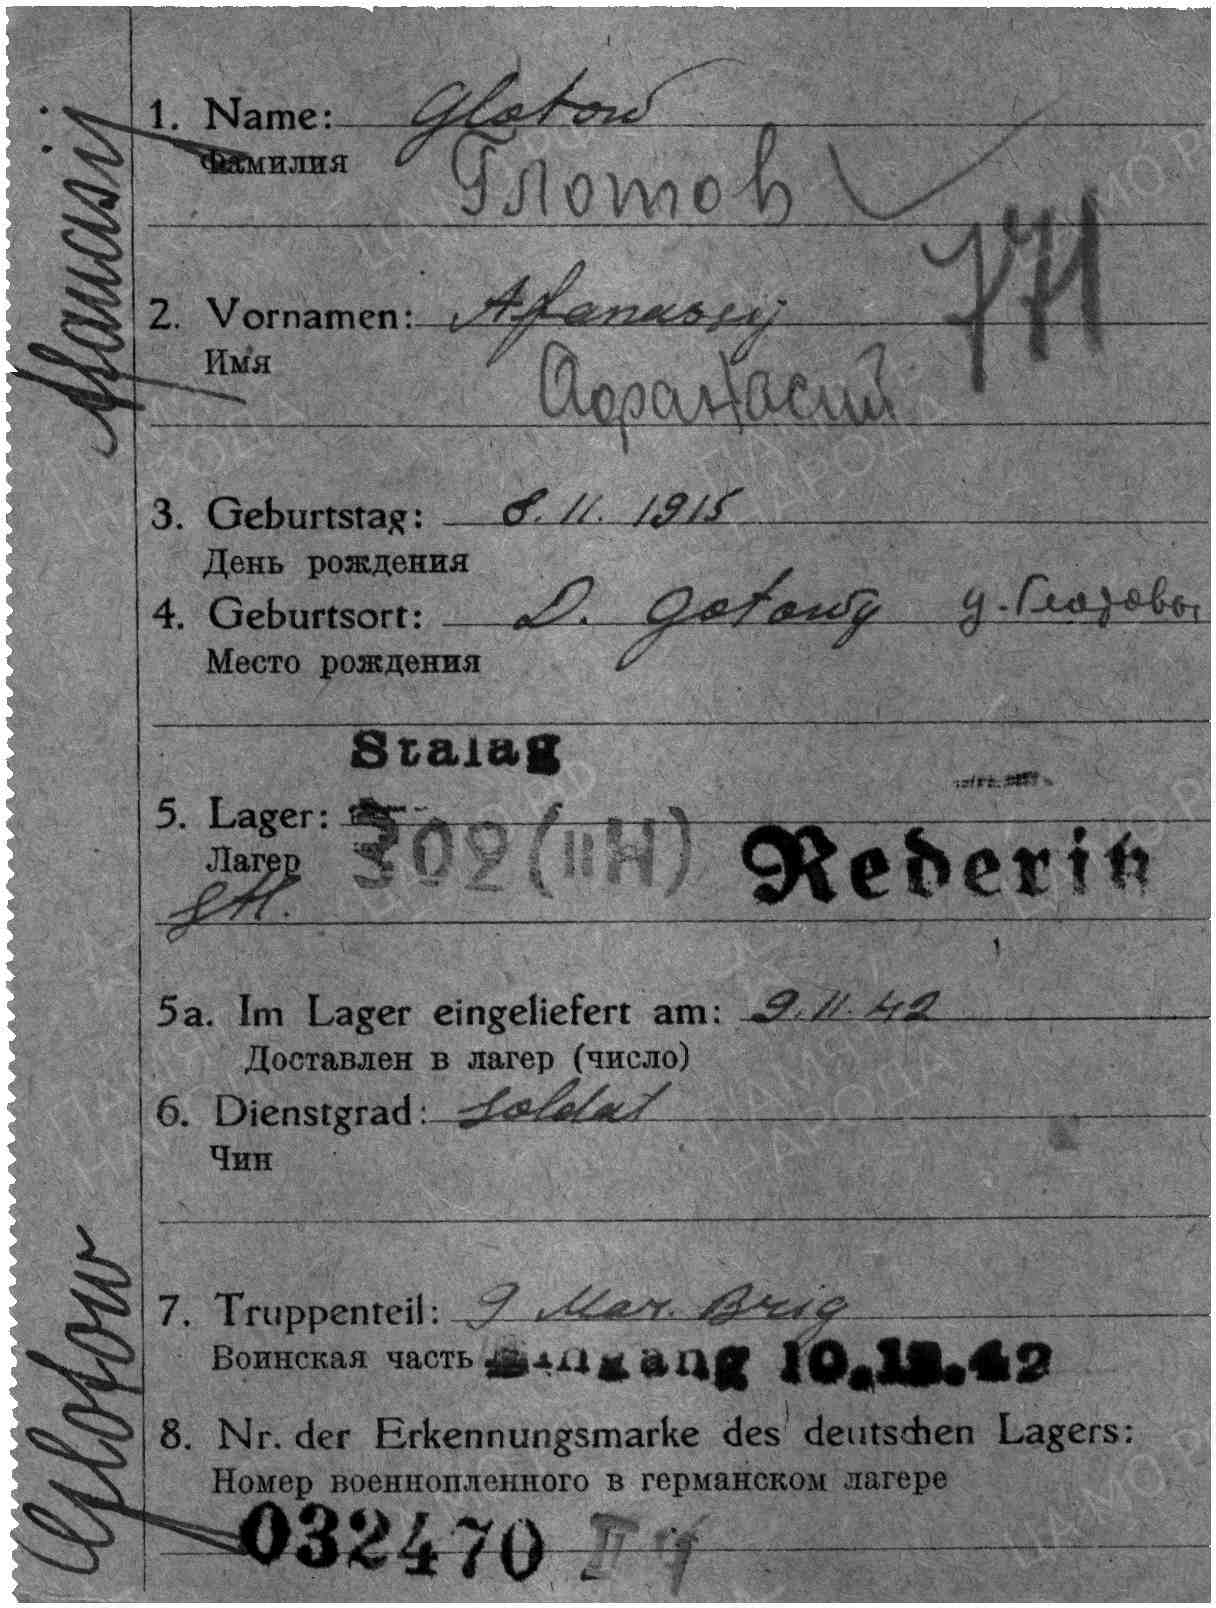 1. Name: Glotow
Фамилия
Глотов
771
2. Vornamen: Afanassij
Имя
Афанасий
3. Geburtstag: 8. 11. 1915
День рождения
4. Geburtsort: D. Gotowy
Место рождения
Stalag
5. Lager: 302 (II H) Rederitz
Лагер
5a. Im Lager eingeliefert am: 9. 11. 42
Доставлен в лагер (число)
6. Dienstgrad: Soldat
Чин
7. Truppenteil: 9 Mar. Brig
Воинская часть Eingang
8. Nr. der Erkennungsmarke des deutschen Lagers:
Номер военнопленного в германском лагере
032470 II
Glotow Afanasij
ПАМЯТЬ
НАРОДА
ЦАМО РФ